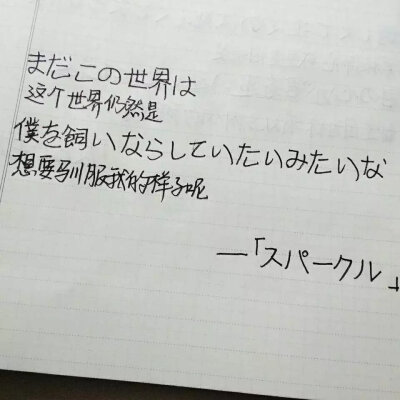 まだこの世界は
这个世界仍然是
僕を飼いならしていたいみたいな
想要驯服我的样子呢
—「スパークル」